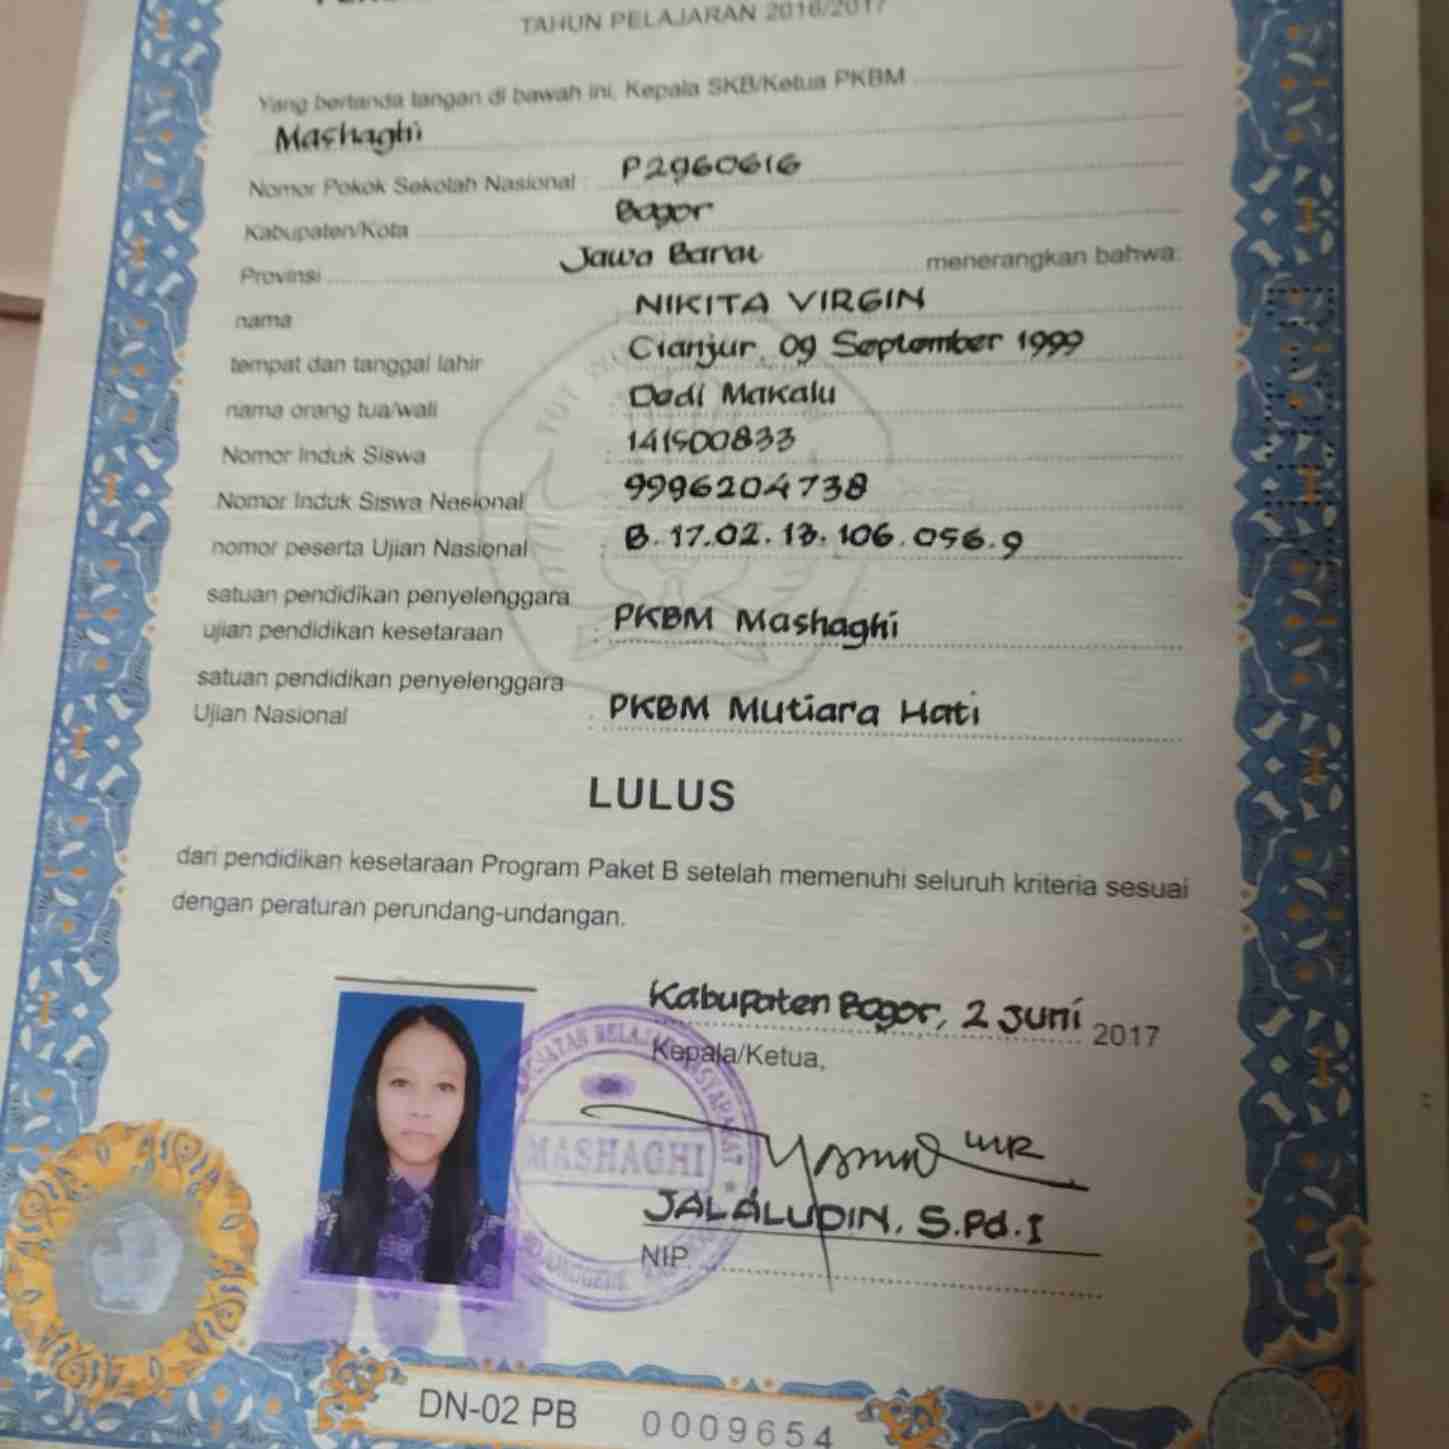 TAHUN PELAJARAN 2016/2017
Yang bertanda tangan di bawah ini, Kepala SKB/Ketua PKBM
Mashaghi
Nomor Pokok Sekolah Nasional : P2960616
Kabupaten/Kota Bogor
Provinsi Jawa Barat menerangkan bahwa:
nama : NIKITA VIRGIN
tempat dan tanggal lahir : Cianjur, 09 September 1999
nama orang tua/wali : Dadi Makalu
Nomor Induk Siswa : 141500833
Nomor Induk Siswa Nasional : 9996204738
nomor peserta Ujian Nasional : B.17.02.13.106.056.9
satuan pendidikan penyelenggara
ujian pendidikan kesetaraan : PKBM Mashaghi
satuan pendidikan penyelenggara
Ujian Nasional : PKBM Mutiara Hati
LULUS
dari pendidikan kesetaraan Program Paket B setelah memenuhi seluruh kriteria sesuai
dengan peraturan perundang-undangan.
Kabupaten Bogor, 2 Juni 2017
Kepala/Ketua,
MASHAGHI
JALALUDIN, S.Pd.I
NIP.
DN-02 PB 0009654